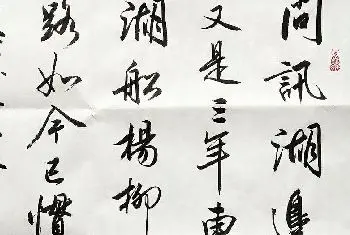 問訊湖邊
又是三年東
湖船楊柳
路如今已慣